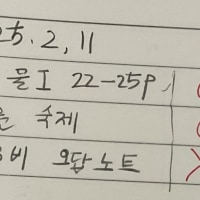 25. 2, 11
물I 22-25p
숙제
오답노트